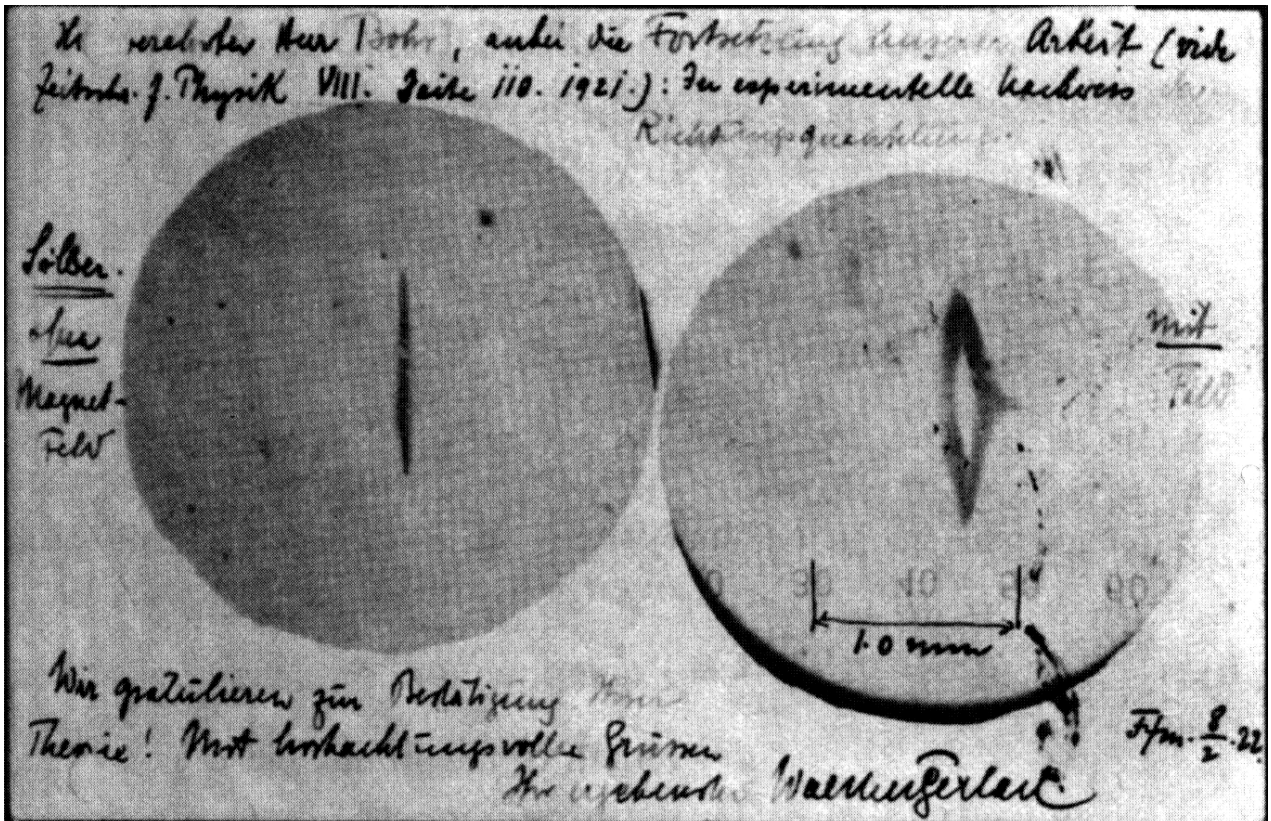 verehrter Herr Bohr, anbei die Fortsetzung unserer Arbeit (vide
Zeitschr. f. Physik VIII. Seite 110. 1921.): Der experimentelle Nachweis
Richtungsquantelung.
Silber.
ohne
Magnet-
Feld
mit
Feld
30 40 50 60
1.0 mm
Wir gratulieren zur Bestätigung Ihrer
Theorie! Mit hochachtungsvollen Grüssen
Ihr ergebenster Walther Gerlach.
Ffm. 8/2.22.